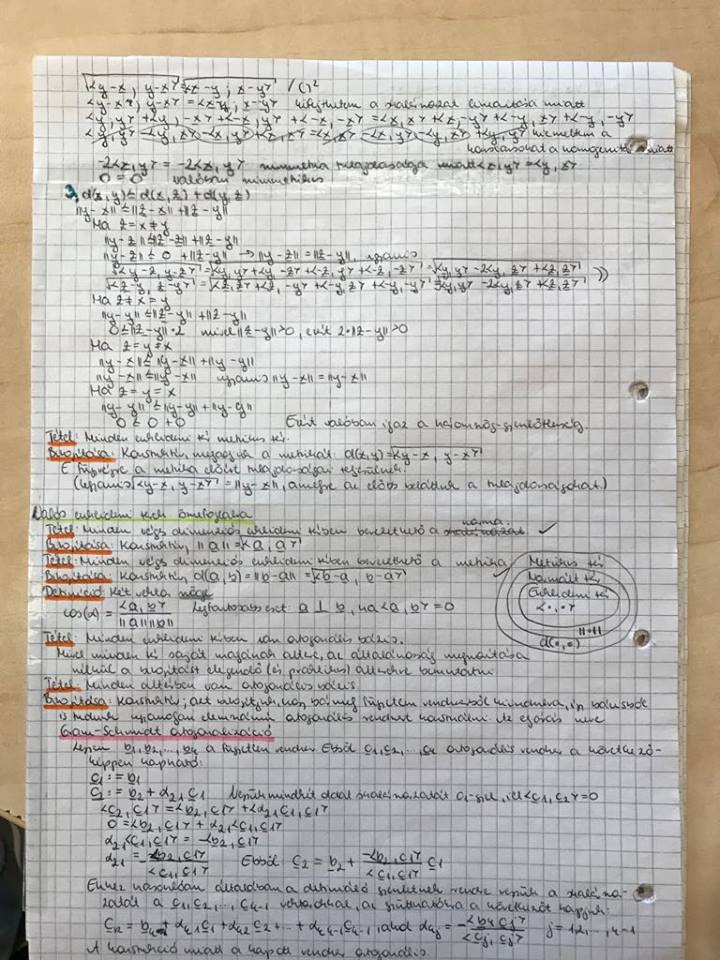 √<y-x, y-x> = √<x-y; x-y> /()²
<y-x, y-x> = <x-y; x-y> kifejtettem a skalárszorzat linearitása miatt
<y, y> + <y, -x> + <-x, y> + <-x, -x> = <x, x> + <x, -y> + <-y, x> + <-y, -y>
<y, y> - <y, x> - <x, y> + <x, x> = <x, x> - <x, y> - <y, x> + <y, y> kiemeltem a
konstansokat a homogenitás miatt
-2<x, y> = -2<x, y> szimmetria tulajdonsága miatt <x, y> = <y, x>
0 = 0 valóban szimmetrikus
3, d(x, y) ≤ d(x, z) + d(y, z)
||y-x|| ≤ ||z-x|| + ||z-y||
Ha z = x ≠ y
||y-z|| ≤ ||z-z|| + ||z-y||
||y-z|| ≤ 0 + ||z-y|| → ||y-z|| = ||z-y||, ugyanis
√<y-z, y-z> = √<y, y> + <y, -z> + <-z, y> + <-z, -z> = √<y, y> - 2<y, z> + <z, z>
√<z-y, z-y> = √<z, z> + <z, -y> + <-y, z> + <-y, -y> = √<y, y> - 2<y, z> + <z, z>
Ha z ≠ x = y
||y-y|| ≤ ||z-y|| + ||z-y||
0 ≤ ||z-y||·2 mivel ||z-y|| > 0, ezért 2·||z-y|| > 0
Ha z = y ≠ x
||y-x|| ≤ ||y-x|| + ||y-y||
||y-x|| ≤ ||y-x|| ugyanis ||y-x|| = ||y-x||
Ha z = y = x
||y-y|| ≤ ||y-y|| + ||y-y||
0 ≤ 0 + 0 Ezért valóban igaz a háromszög-egyenlőtlenség.
Tétel: Minden euklideszi tér metrikus tér.
Bizonyítása: Konstruktív, megadjuk a metrikát: d(x,y) = √<y-x, y-x>
E függvényre a metrika előírt tulajdonságai teljesülnek.
(ugyanis √<y-x, y-x> = ||y-x||, amelyre az előbb beláttuk a tulajdonságokat.)
Valós euklideszi terek összefoglalása
norma.
Tétel: Minden véges dimenziós euklideszi térben bevezethető a skalárszorzat ✓
Bizonyítása: Konstruktív, ||a|| = √<a, a>
Tétel: Minden véges dimenziós euklideszi térben bevezethető a metrika ✓
Bizonyítása: Konstruktív, d(a, b) = ||b-a|| = √<b-a, b-a>
Definíció: Két vektor szöge
cos(α) = <a, b> / ||a|| ||b|| Legfontosabb eset a ⊥ b, ha <a, b> = 0
Metrikus tér
Normált tér
Euklideszi tér
<•, •>
||•||
d(•,•)
Tétel: Minden euklideszi térben van ortogonális bázis.
Mivel minden tér saját magának altere, az általánosság megszorítása
nélkül a bizonyítást elegendő (és praktikus) alterekre bemutatni
Tétel: Minden altérben van ortogonális bázis
Bizonyítása: Konstruktív; azt bizonyítjuk, hogy bármely független rendszerből kiindulva, így bázisból
is tudunk ugyanolyan elemszámú ortogonális rendszert konstruálni. Az eljárás neve
Gram-Schmidt ortogonalizáció
Legyen b₁, b₂, ..., bₖ a független rendszer. Ebből c₁, c₂, ..., cₖ ortogonális rendszer a követke-
képpen kapható:
c₁ := b₁
c₂ := b₂ + α₂₁ c₁ Vegyük mindkét oldal skalárszorzatát c₁-gyel, itt <c₁, c₂> = 0
<c₂, c₁> = <b₂, c₁> + α₂₁<c₁, c₁>
0 = <b₂, c₁> + α₂₁<c₁, c₁>
α₂₁<c₁, c₁> = -<b₂, c₁>
α₂₁ = -<b₂, c₁> / <c₁, c₁> Ebből: c₂ = b₂ + -<b₂, c₁> / <c₁, c₁> c₁
Ehhez hasonlóan általában a definiáló egyenletnek rendre vesszük a skalárszor-
zatát a c₁, c₂, ..., cₖ₋₁ vektorokkal, az együtthatókra a következőt kapjuk:
cₖ = bₖ + αₖ₁c₁ + αₖ₂c₂ + ... + αₖ,ₖ₋₁cₖ₋₁, ahol αₖⱼ = -<bₖ, cⱼ> / <cⱼ, cⱼ> j = 1, 2, ..., k-1
A konstrukció miatt a kapott rendszer ortogonális.